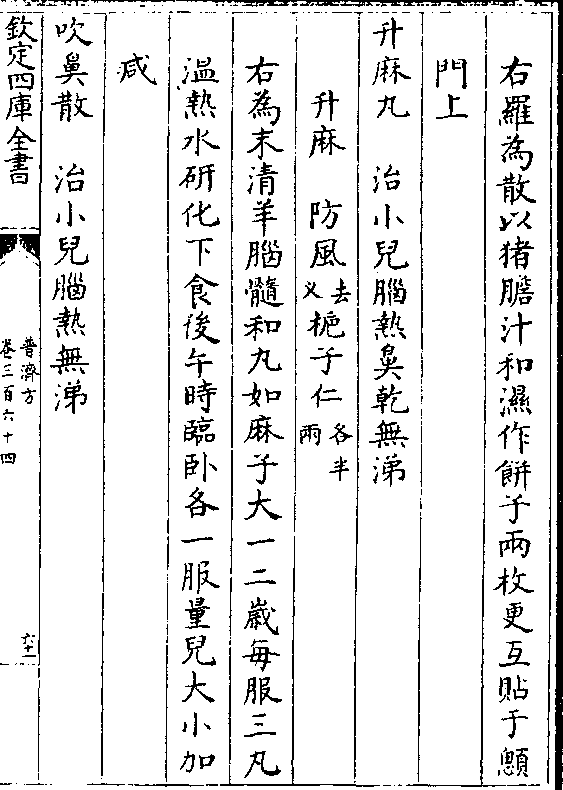 右羅為散以猪膽汁和濕作餅子兩枚更互貼于顖
門上
升麻丸　治小兒腦熱鼻乾無涕
升麻　防風去义　梔子仁各半兩
右為末清羊腦髓和丸如麻子大一二歲每服三丸
温熱水研化下食後午時臨卧各一服量兒大小加
咸
吹鼻散　治小兒腦熱無涕
欽定四庫全書
普濟方
卷三百六十四
六十一